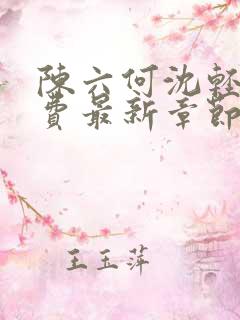 陳六何沈輕
費最新章節
王玉萍